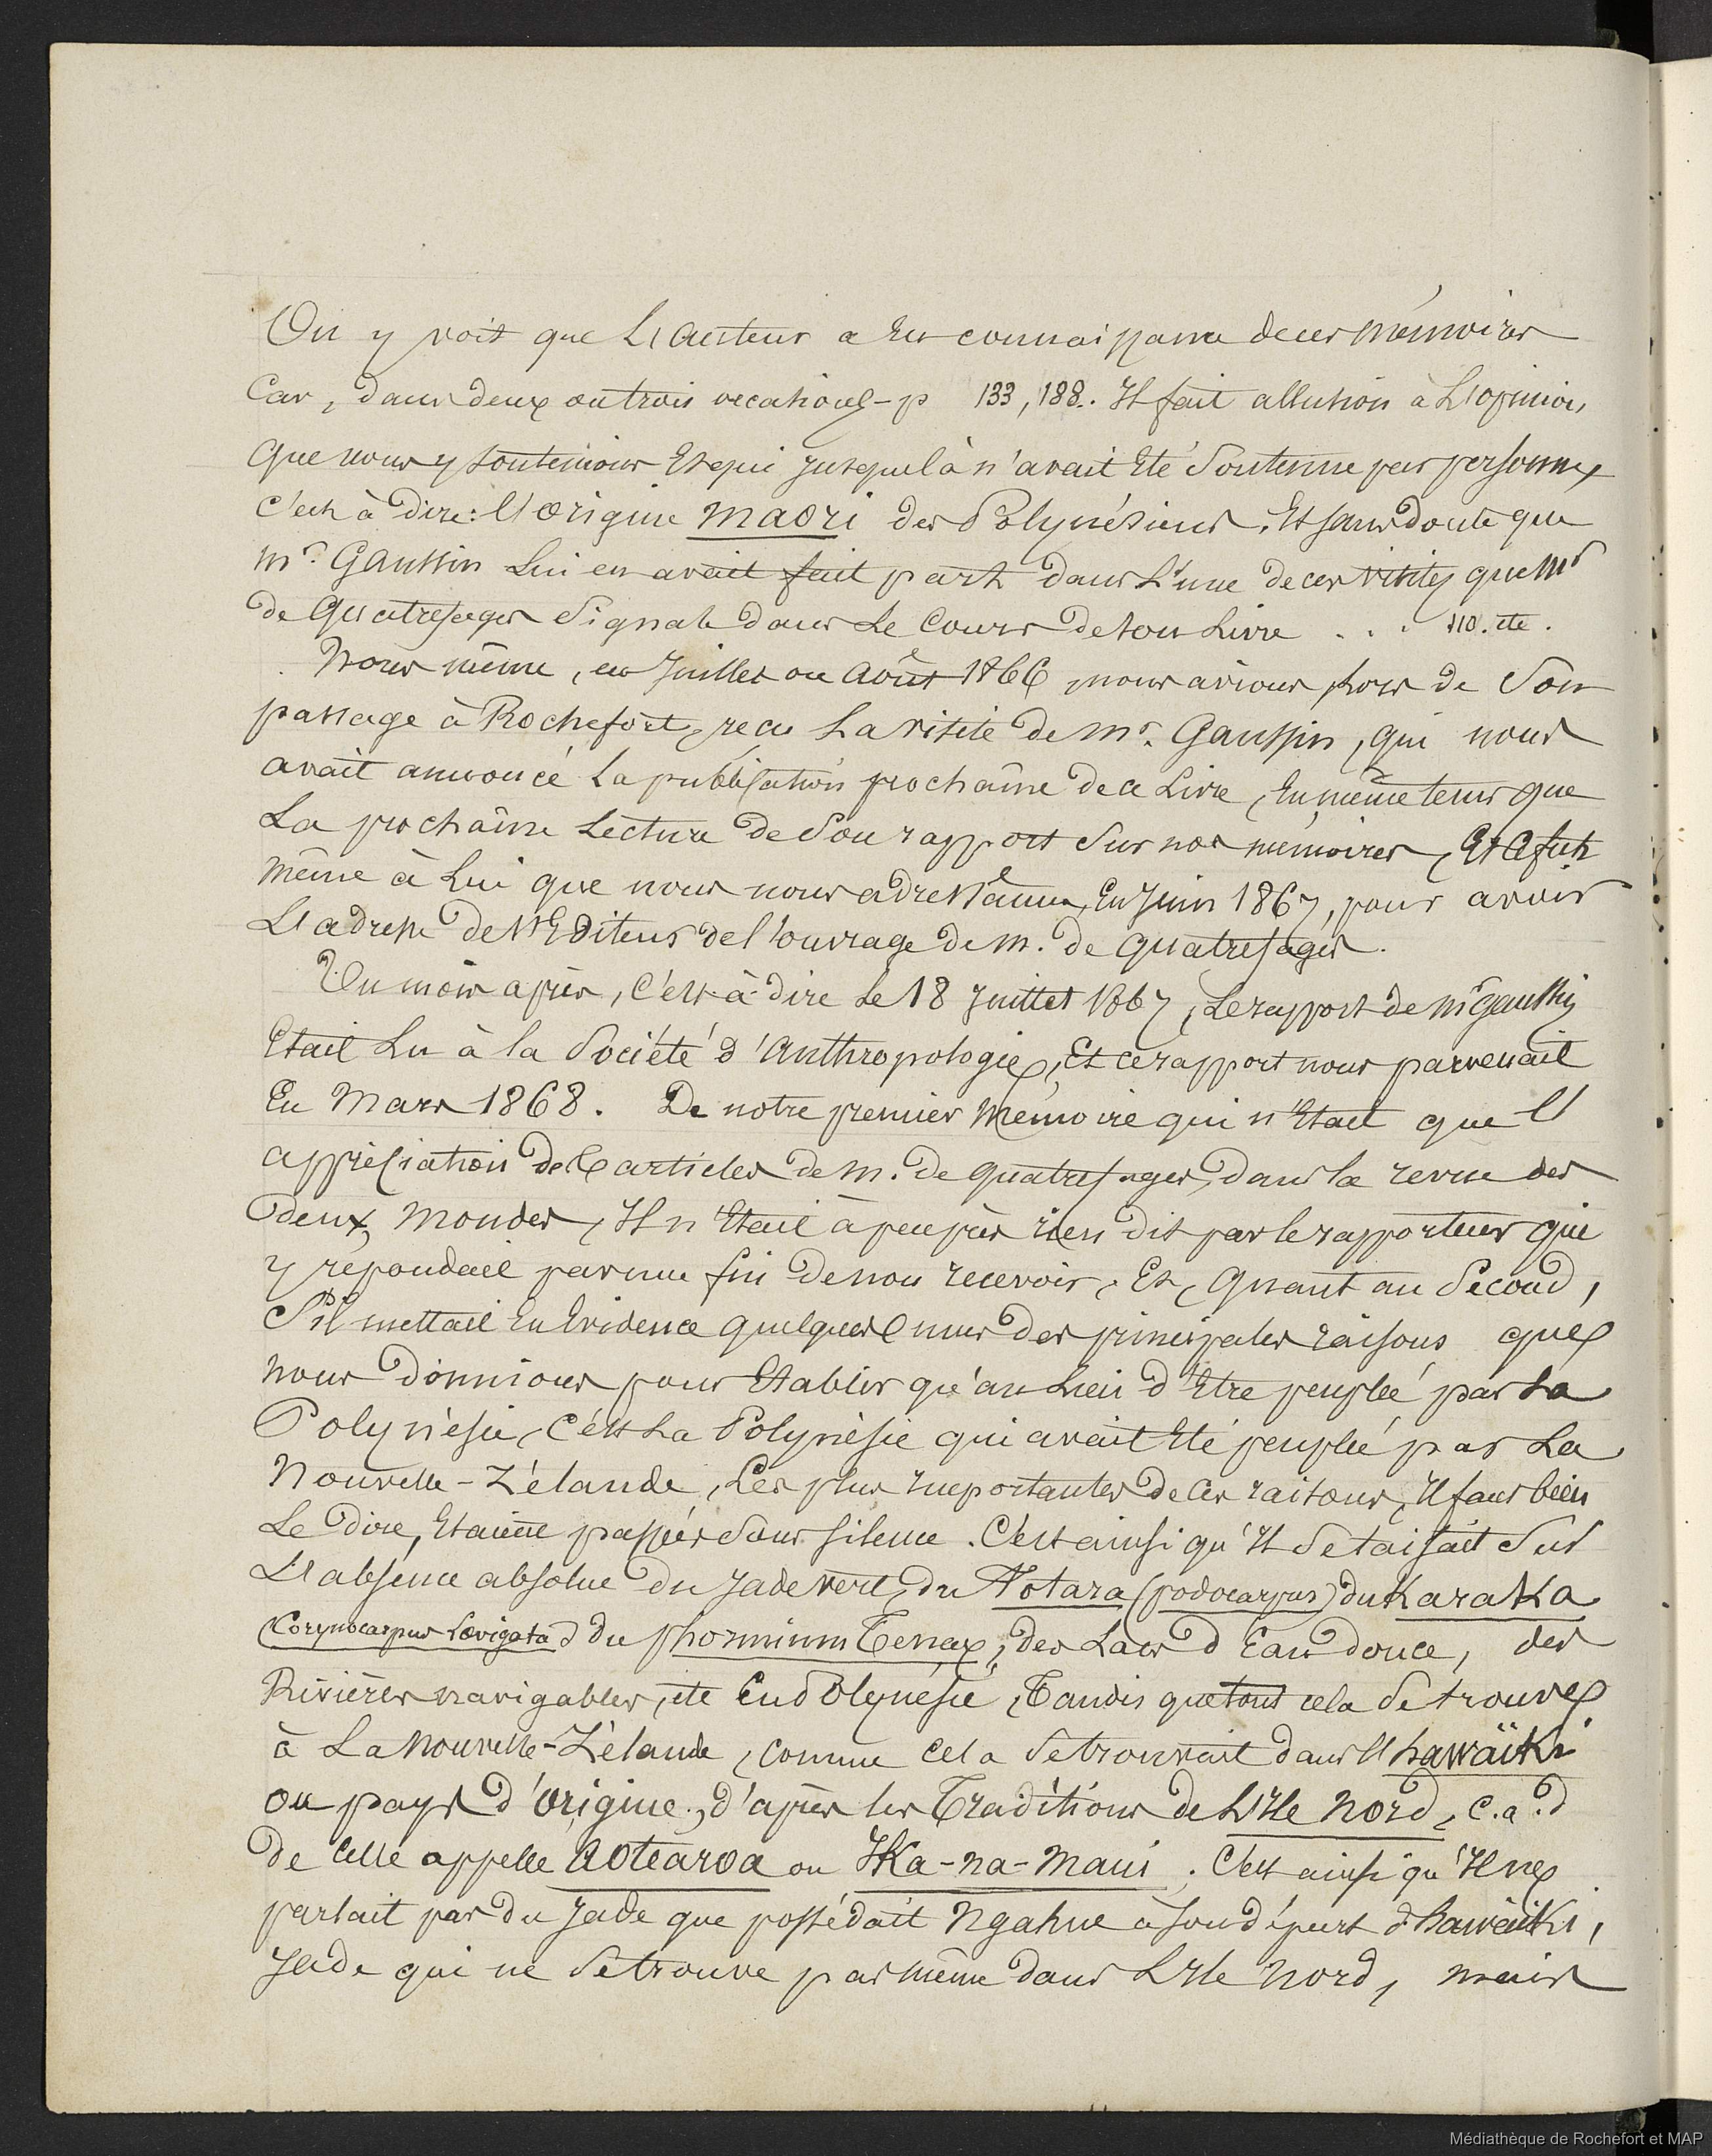 On y voit que L'auteur a eu connaissance de ces mémoires
Car, dans deux ou trois occasions - p 133, 188. Il fait allusion à L'opinion,
Que nous y soutenions Et qui jusque là n'avait Eté Soutenue par personne,
C'est à dire: l'origine maori des Polynésiens. Et sans doute que
Mr. Gaussin Lui en avait fait part dans L'une de ces visites que Mr
de Quatrefages Signale dans Le Cours de son Livre . . . 110. etc.
Nous même, en Juillet ou Août 1866, nous avions, lors de Son
passage à Rochefort, reçu La visite de Mr. Gaussin, qui nous
avait annoncé La publication prochaîne de ce Livre, En même tems que
La prochaîne Lecture de Son rapport Sur nos mémoires, Et ce fut
même à Lui que nous nous adressâmes, En Juin 1867, pour avoir
L'adresse de l'Editeur de l'ouvrage de M. de Quatrefages.
Un mois après, C'est-à-dire Le 18 Juillet 1867, Le rapport de Mr Gaussin
Etait Lu à la Société d'Anthropologie, Et ce rapport nous parvenait
En Mars 1868. De notre premier Mémoire qui n'Etait que l'
appréciation des articles de M. de Quatrefages, dans la revue des
deux Mondes, Il n'Etait à peu près rien dit par le rapporteur qui
y répondait par une fin de non recevoir, Et, Quant au Second,
S'il mettait En Evidence quelques unes des principales raisons que
nous donnions pour Etablir qu'au Lieu d'Etre peuplée par La
Polynésie, C'est La Polynésie qui avait Eté peuplée par La
Nouvelle-Zélande, Les plus Importantes de ces raisons, Il faut bien
Le dire, Etaient passées Sous silence. C'est ainsi qu'Il Se taisait Sur
L'absence absolue du Jade vert, du Totara (podocarpus) du Karaka
(Corynocarpus Lævigata) du phormium Tenax, des Lacs d'Eau douce, des
Rivières navigables, etc En Polynésie, Tandis que tout cela Se trouve
à La Nouvelle-Zélande, comme Cela Se trouvait dans l'hawaïki
ou pays d'origine, d'après les Traditions de L'Ile Nord, c.a.d
de celle appelle Aotearoa ou Ika-na-Maui. C'est ainsi qu'Il ne
parlait pas du Jade que possédait Ngahue à son départ d'hawaïki,
Jade qui ne Se trouve pas même dans L'Ile Nord, mais